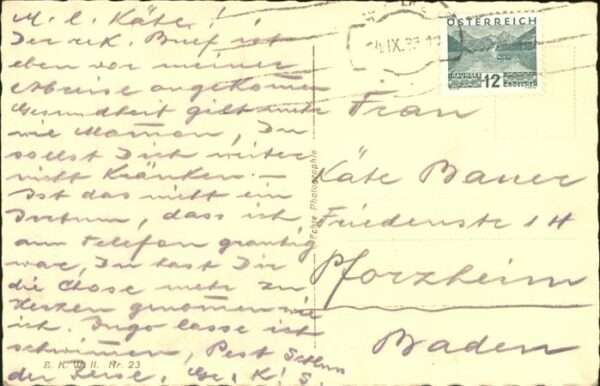 M. l. Käte!
Der rek. Brief ist
eben vor meiner
Abreise angekommen
Gesundheit gilt mehr
wie Mamon, Du
sollst Dich weiter
nicht kränken. —
Ist das nicht ein
Irrtum, dass ich
am Telefon grantig
war, Du hast Dir
die Chose mehr zu
Herzen genommen wie
ich. Ingo lasse ich
schwimmen, Pest Schluss
der Reise.
E. K. W. II. Nr. 23
Echte Photographie
ÖSTERREICH
12
GROSCHEN
Frau
Käte Bauer
Friedenstr 14
Pforzheim
Baden